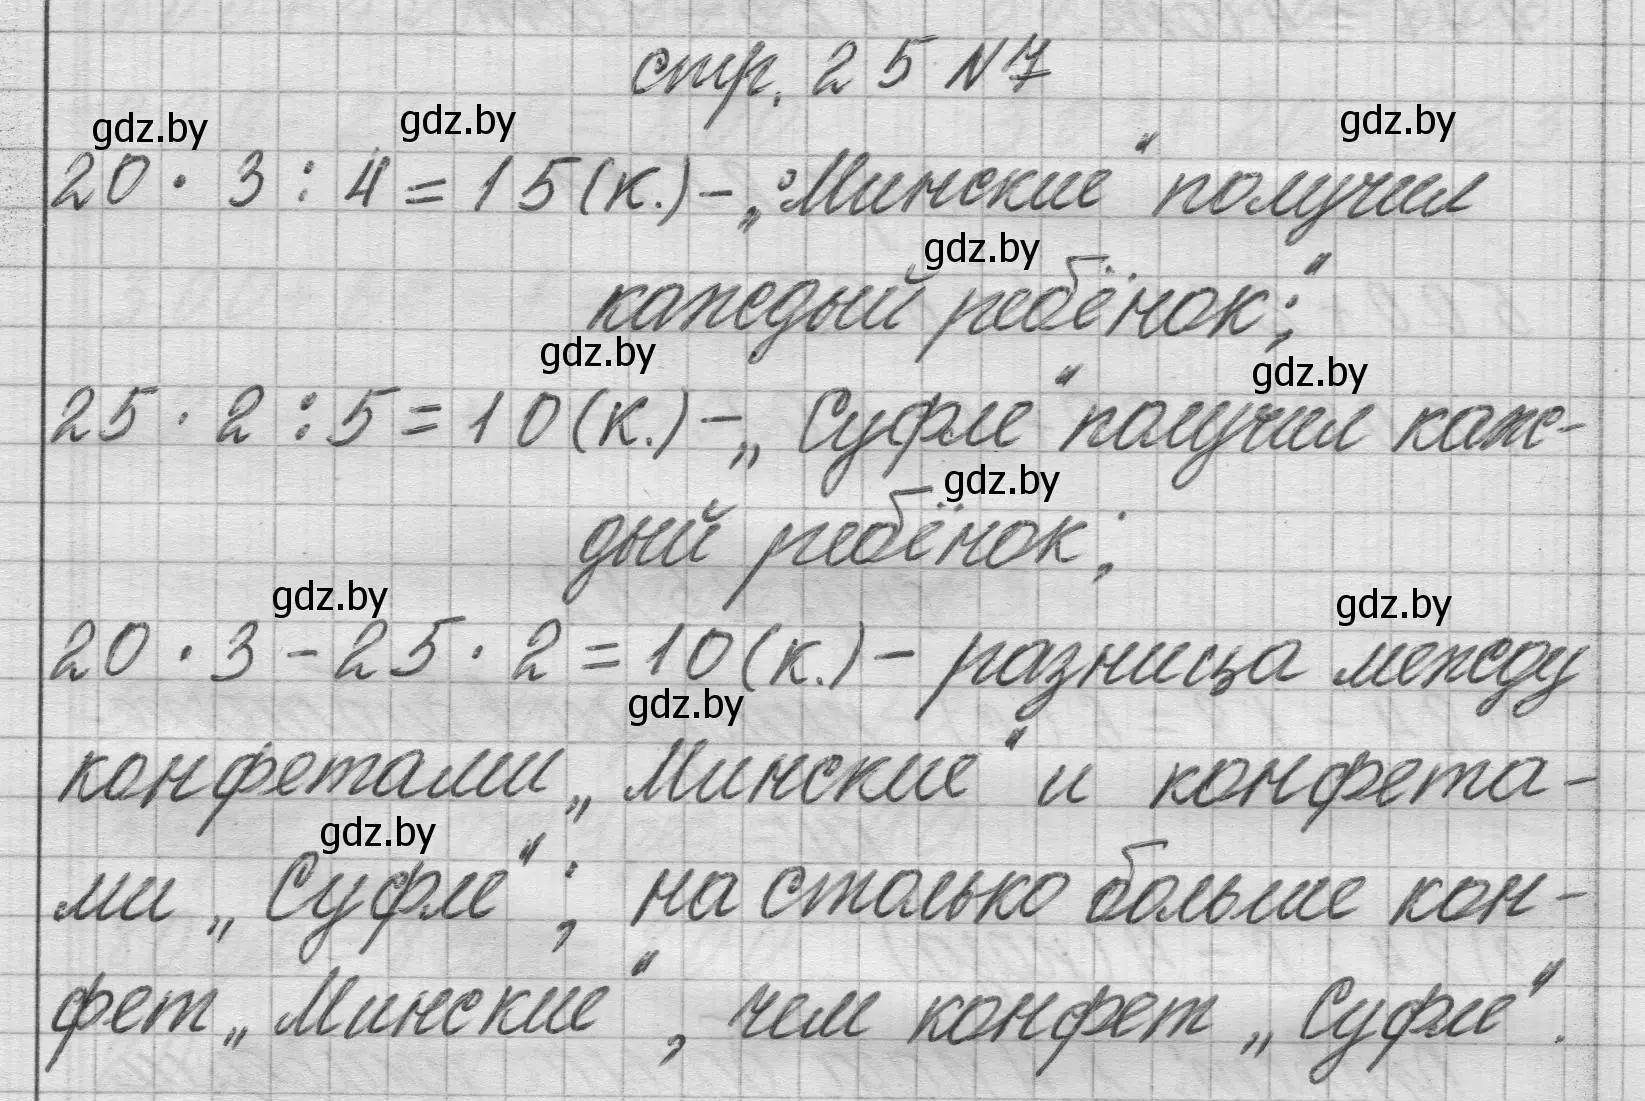 стр. 25 N 7
gdz.by gdz.by gdz.by
20 · 3 : 4 = 15 (к.) – „Минские“ получил
gdz.by
каждый ребёнок;“
gdz.by gdz.by
25 · 2 : 5 = 10 (к.) – „Суфле“ получил каж-
gdz.by
дый ребёнок;
gdz.by gdz.by
20 · 3 – 25 · 2 = 10 (к.) – разница между
gdz.by
конфетами „Минские“ и конфета-
gdz.by
ми „Суфле“; на столько больше кон-
фет „Минские“, чем конфет „Суфле“.